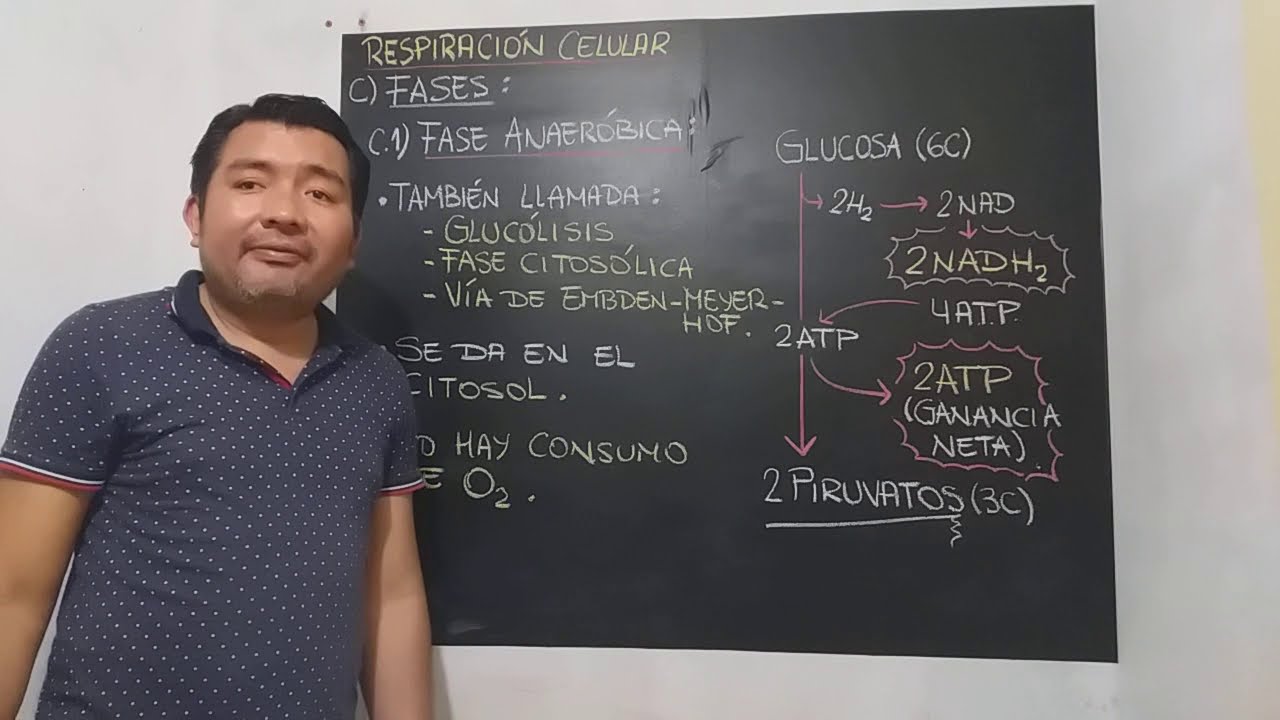 RESPIRACIÓN CELULAR
C) FASES:
C.1) FASE ANAERÓBICA:
• TAMBIÉN LLAMADA:
- GLUCÓLISIS
- FASE CITOSÓLICA
- VÍA DE EMBDEN-MEYER-
HOF.
SE DA EN EL
CITOSOL.
O HAY CONSUMO
E O₂.
GLUCOSA (6C)
2H₂ → 2NAD
2NADH₂
4ATP
2ATP
2ATP
(GANANCIA
NETA)
2 PIRUVATOS (3C)